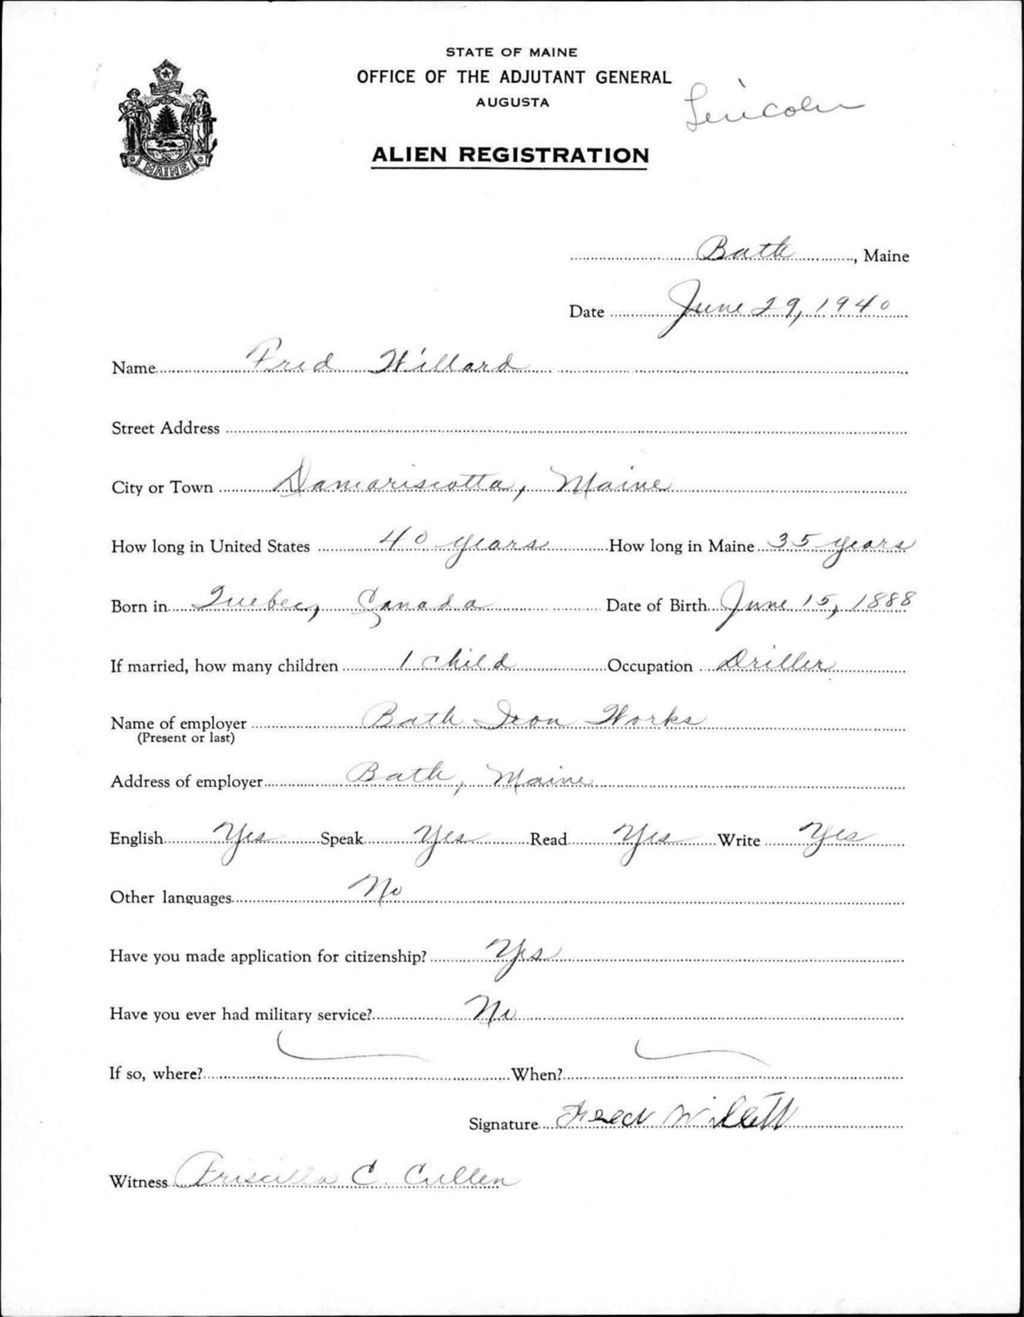 STATE OF MAINE
OFFICE OF THE ADJUTANT GENERAL
AUGUSTA
Lincoln
ALIEN REGISTRATION
MAINE
Bath, Maine
Date June 29, 1940
Name Fred Willard
Street Address
City or Town Damariscotta, Maine
How long in United States 40 years How long in Maine 35 years
Born in Quebec, Canada Date of Birth June 15, 1888
If married, how many children 1 child Occupation Driller
Name of employer Bath Iron Works
(Present or last)
Address of employer Bath, Maine
English Yes Speak Yes Read Yes Write Yes
Other languages No
Have you made application for citizenship? Yes
Have you ever had military service? No
If so, where? When?
Signature Fred Willett
Witness Priscilla C. Cullen